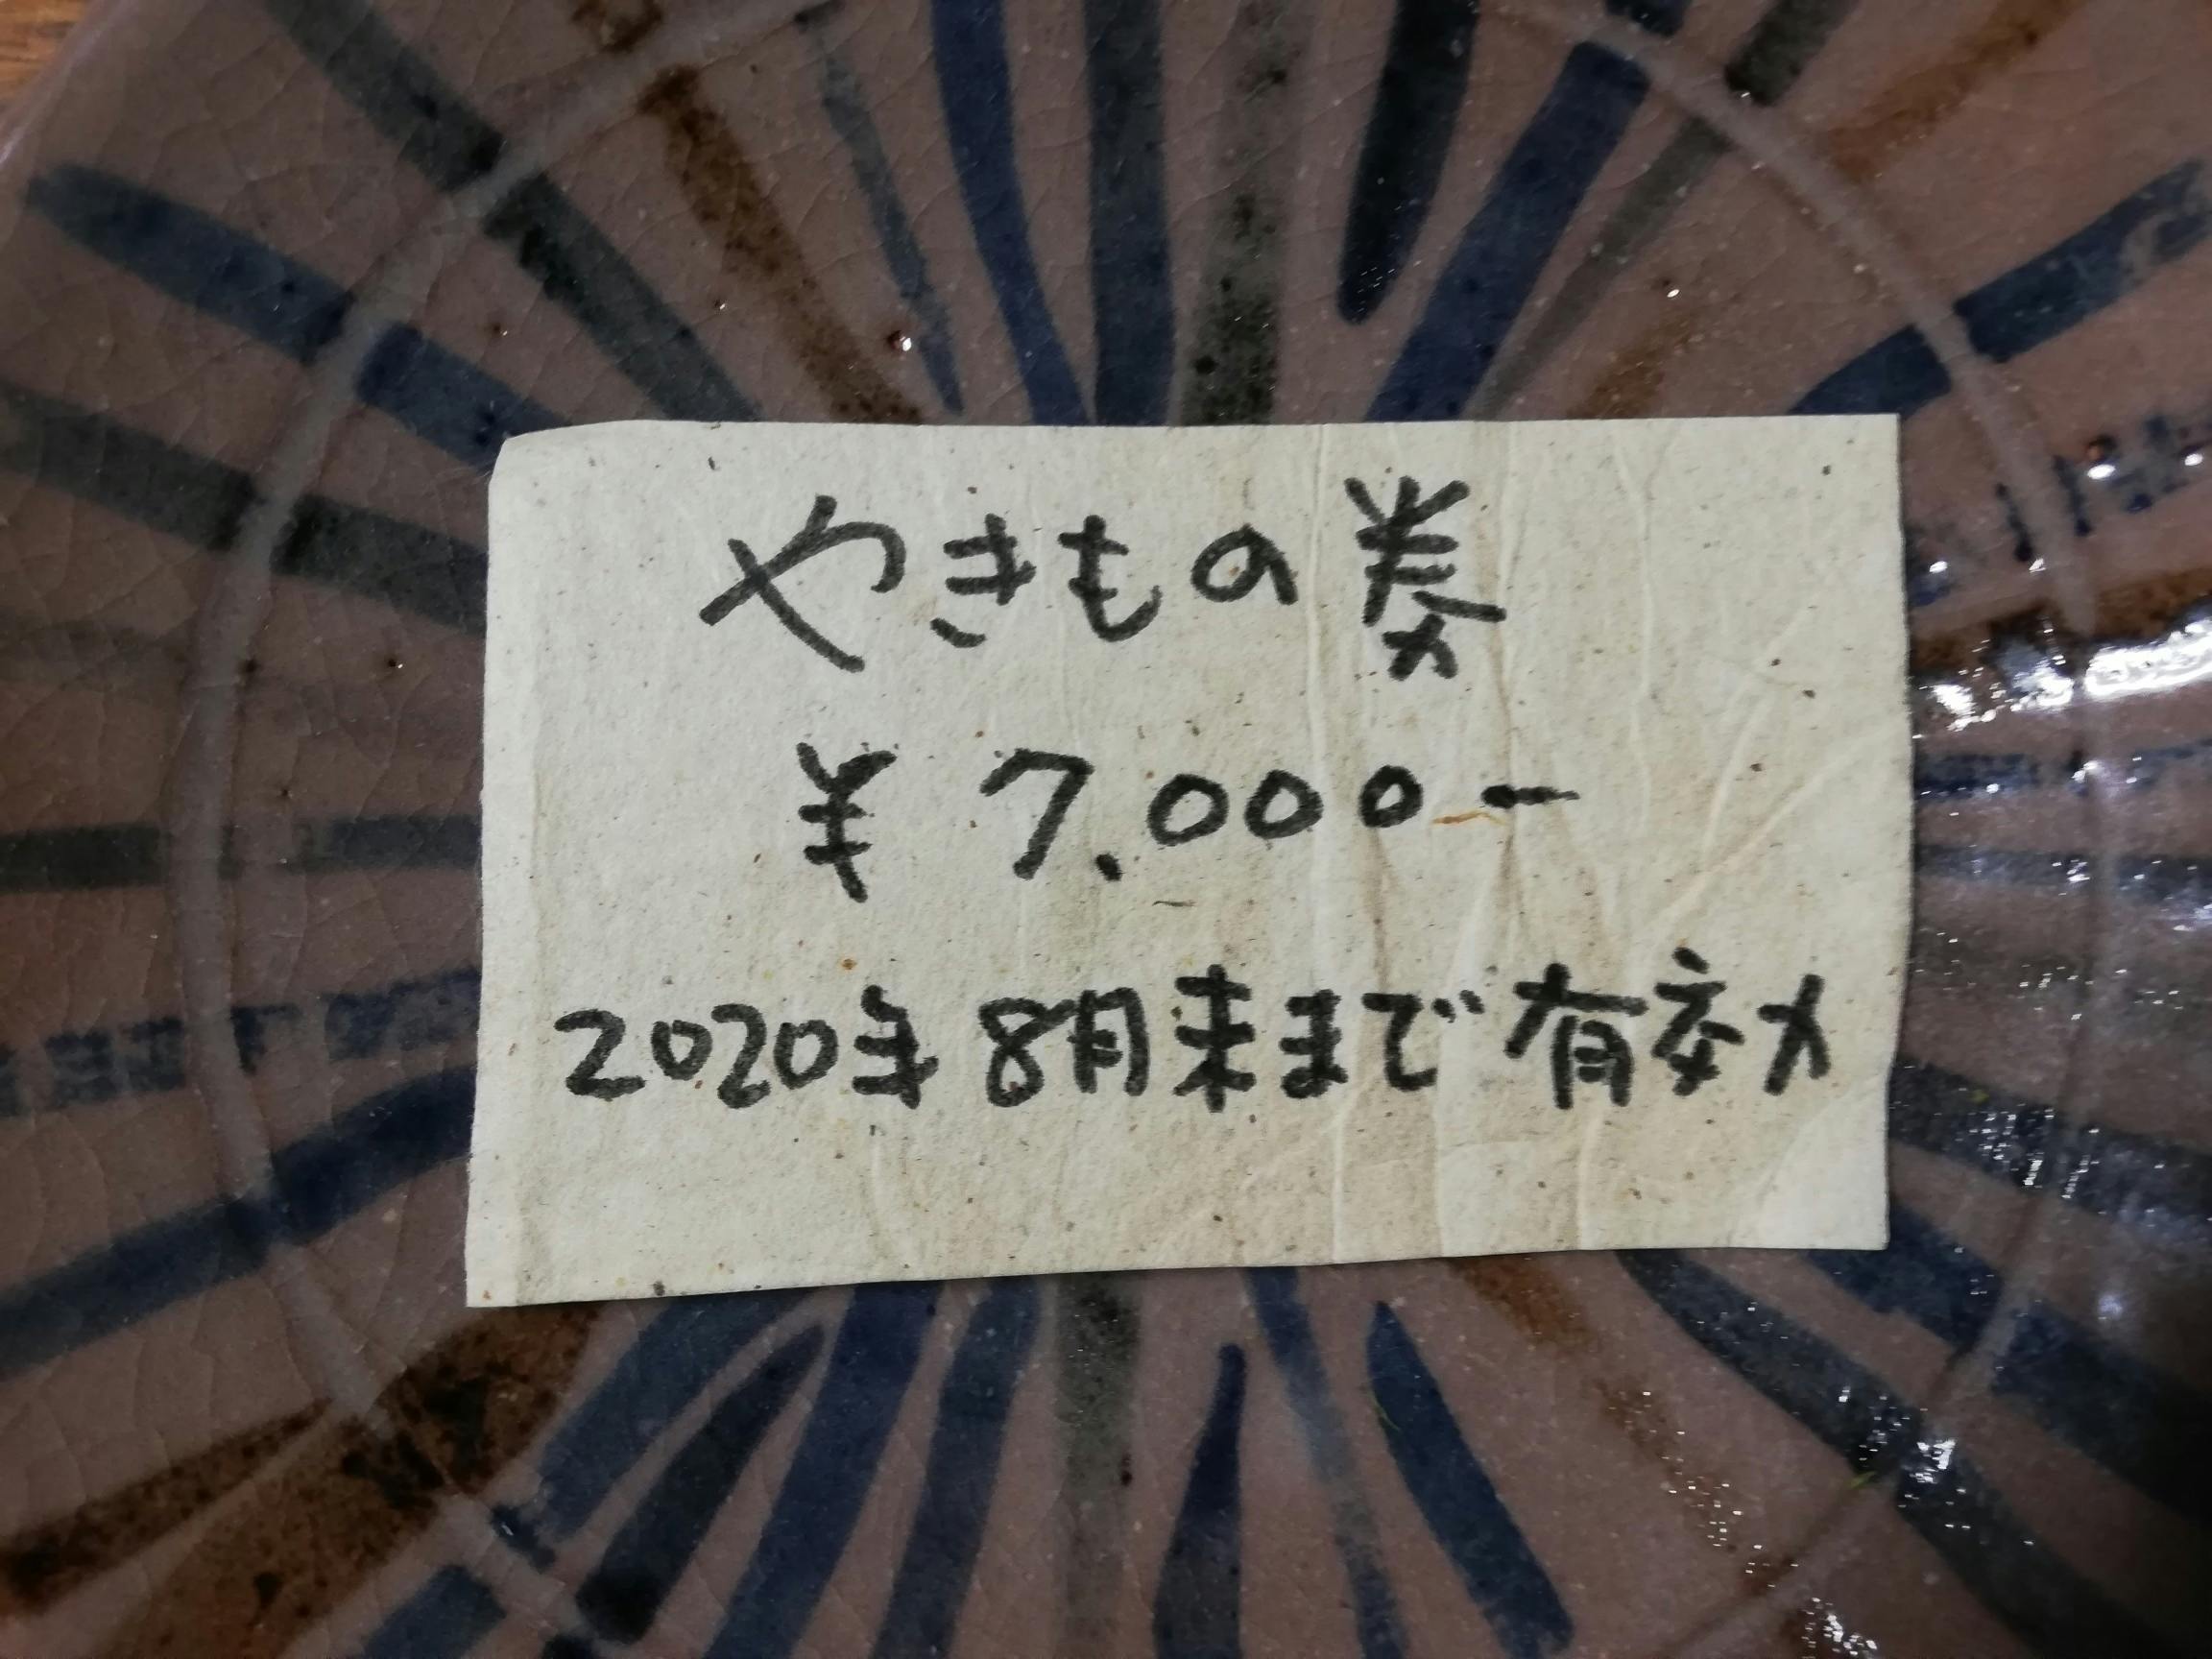 やきもの券
¥7.000-
2020年8月末まで有効